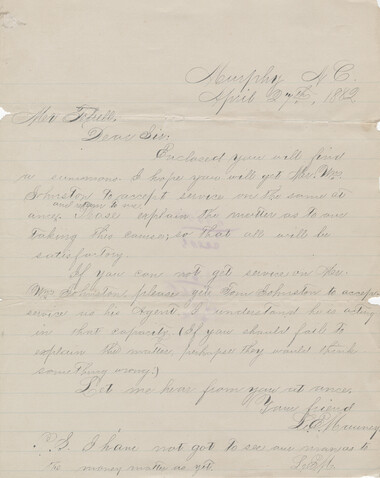 Murphy N.C.
April 27th, 1882
Mr.
Dear Sir:
Enclosed you will find
a summons I hope you will get Mr. Wm
Johnston to accept service on the same at
and return to me
once. Please explain the matter as to our
taking this course, so that all will be
satisfactory.
If you can not get service on Mr.
Wm Johnston, please get Tom Johnston to accept
service as his Agent. I understand he is acting
in that capacity. (If you should fail to
explain the matter, perhaps they would think
something wrong.)
Let me hear from you at once.
Your friend
P.S. I have not got to see our man as to
the money matter as yet.